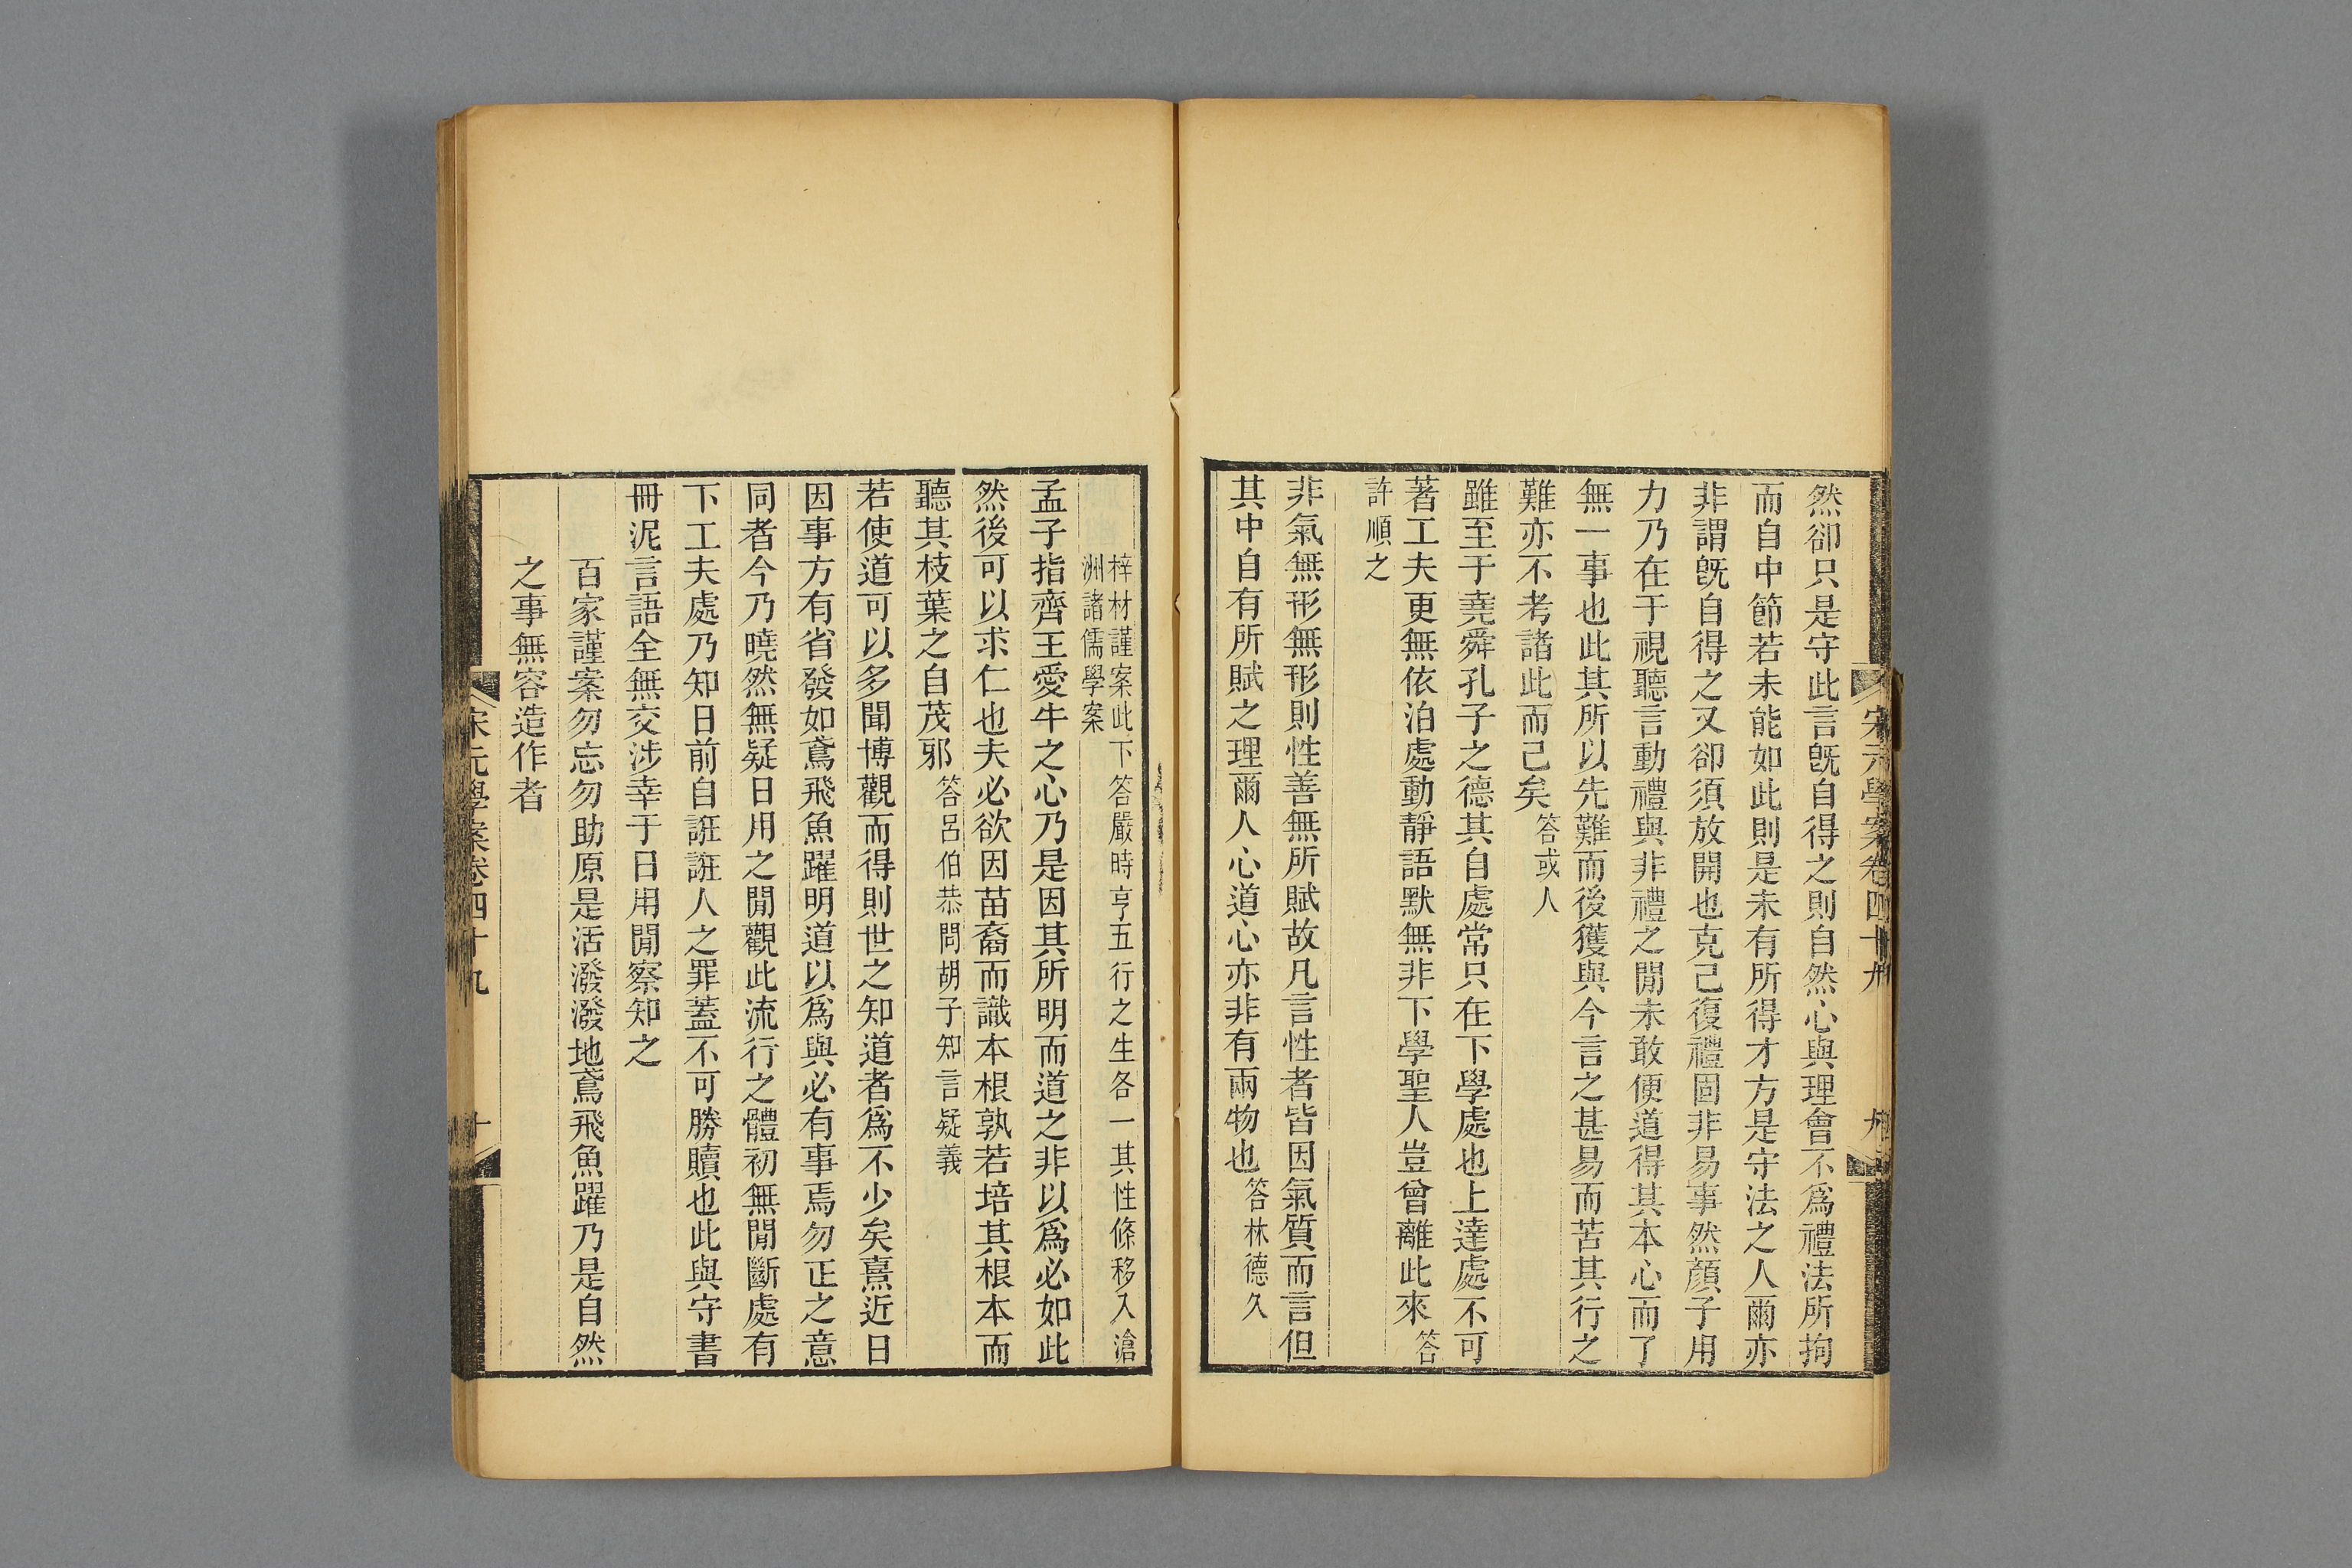 宋元學案卷四十九 九
然卻只是守此言旣自得之則自然心與理會不爲禮法所拘
而自中節若未能如此則是未有所得才方是守法之人爾亦
非謂旣自得之又卻須放開也克己復禮固非易事然顏子用
力乃在于視聽言動禮與非禮之閒未敢便道得其本心而了
無一事也此其所以先難而後獲與今言之甚易而苦其行之
難亦不考諸此而已矣答或人
雖至于堯舜孔子之德其自處常只在下學處也上達處不可
著工夫更無依泊處動靜語默無非下學聖人豈曾離此來答
許順之
非氣無形無形則性善無所賦故凡言性者皆因氣質而言但
其中自有所賦之理爾人心道心亦非有兩物也答林德久
梓材謹案此下答嚴時亨五行之生各一其性條移入滄
洲諸儒學案
孟子指齊王愛牛之心乃是因其所明而道之非以爲必如此
然後可以求仁也夫必欲因苗裔而識本根孰若培其根本而
聽其枝葉之自茂邪答呂伯恭問胡子知言疑義
若使道可以多聞博觀而得則世之知道者爲不少矣熹近日
因事方有省發如鳶飛魚躍明道以爲與必有事焉勿正之意
同者今乃曉然無疑日用之閒觀此流行之體初無閒斷處有
下工夫處乃知日前自誑誑人之罪蓋不可勝贖也此與守書
冊泥言語全無交涉幸于日用閒察知之
百家謹案勿忘勿助原是活潑潑地鳶飛魚躍乃是自然
之事無容造作者
宋元學案卷四十九 十